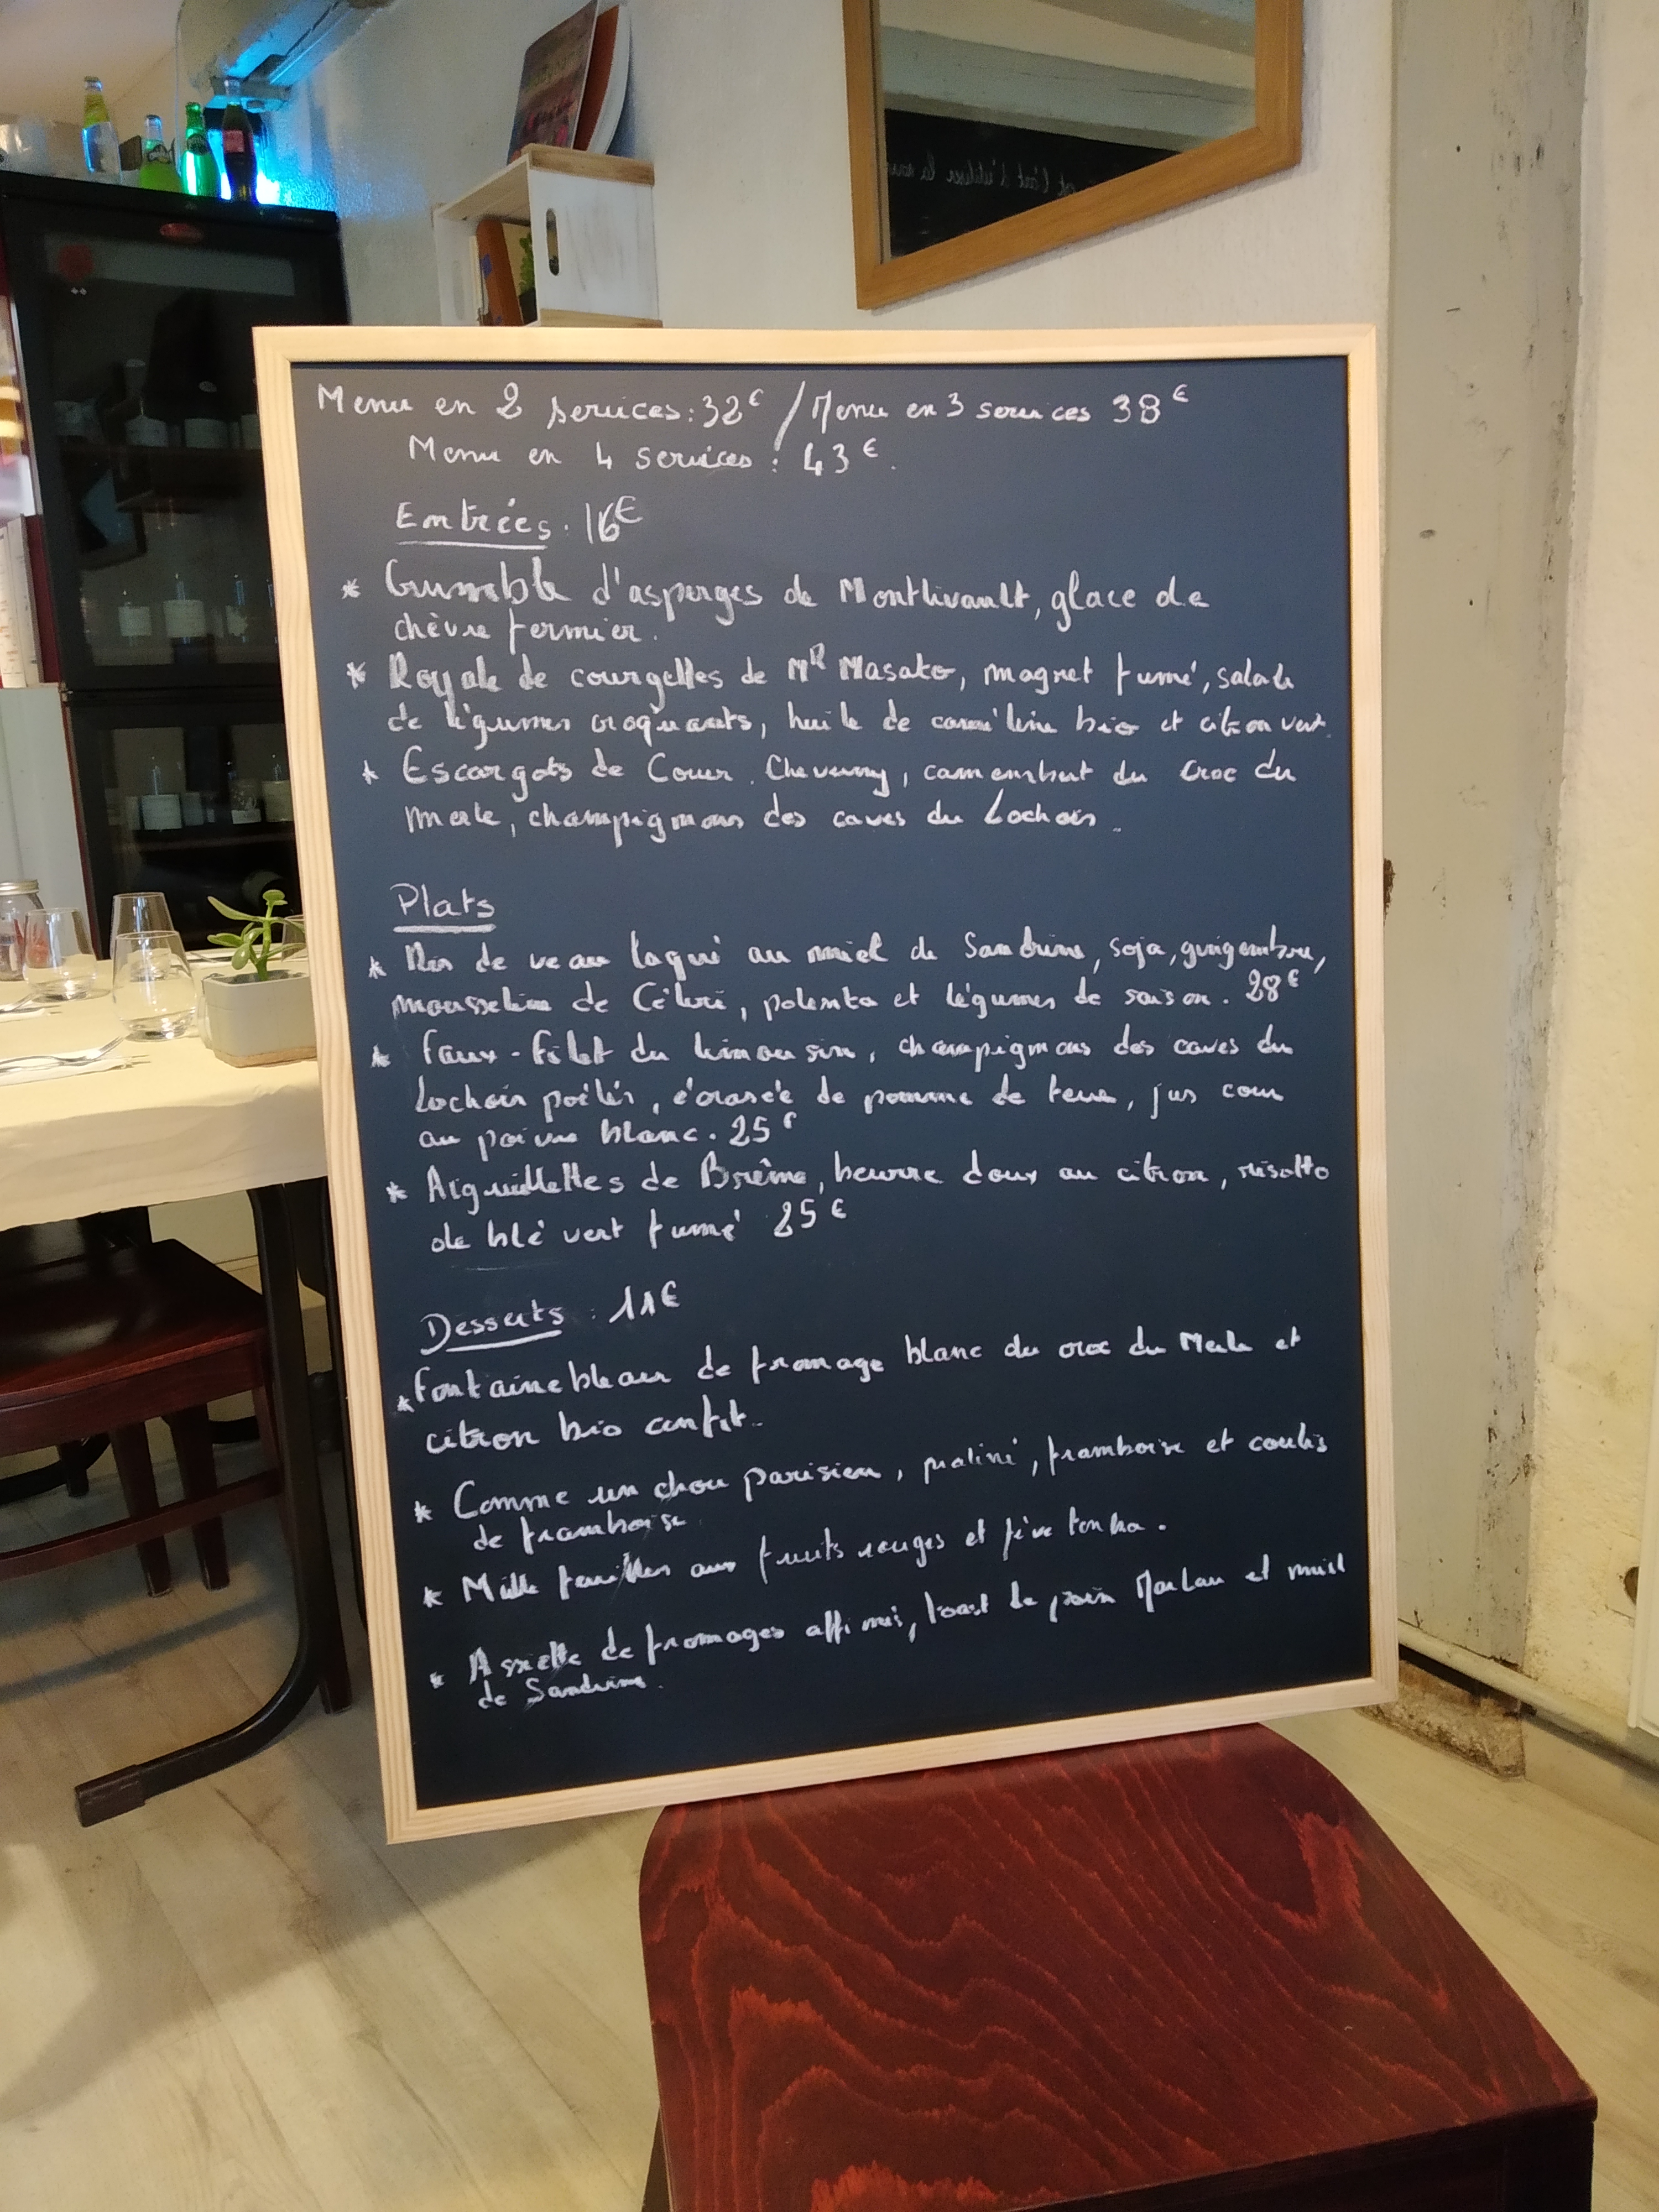 Menu en 2 services : 32€ / Menu en 3 services 38€
Menu en 4 services : 43€.
Entrées : 16€
* Crumble d'asperges de Montlivault, glace de
chèvre fermier.
* Royale de courgettes de MR Masato, magret fumé, salade
de légumes croquants, huile de caméline bio et citron vert.
* Escargots de Cour. Cheverny, camembert du Croc du
merle, champignons des caves du Lochois.
Plats
* Ris de veau laqué au miel de Sandrine, soja, gingembre,
mousseline de Céleri, polenta et légumes de saison. 28€
* Faux-filet du limousin, champignons des caves du
Lochois poêlés, écrasée de pomme de terre, jus court
au poivre blanc. 25€
* Aiguillettes de Brème, beurre doux au citron, risotto
de blé vert fumé 25€
Desserts : 11€
* Fontainebleau de fromage blanc du croc du Merle et
citron bio confit.
* Comme un chou parisien, praliné, framboise et coulis
de framboise
* Mille feuilles aux fruits rouges et fève tonka.
* Assiette de fromages affinés, toast de pain et miel
de Sandrine.
est l'art d'utiliser la